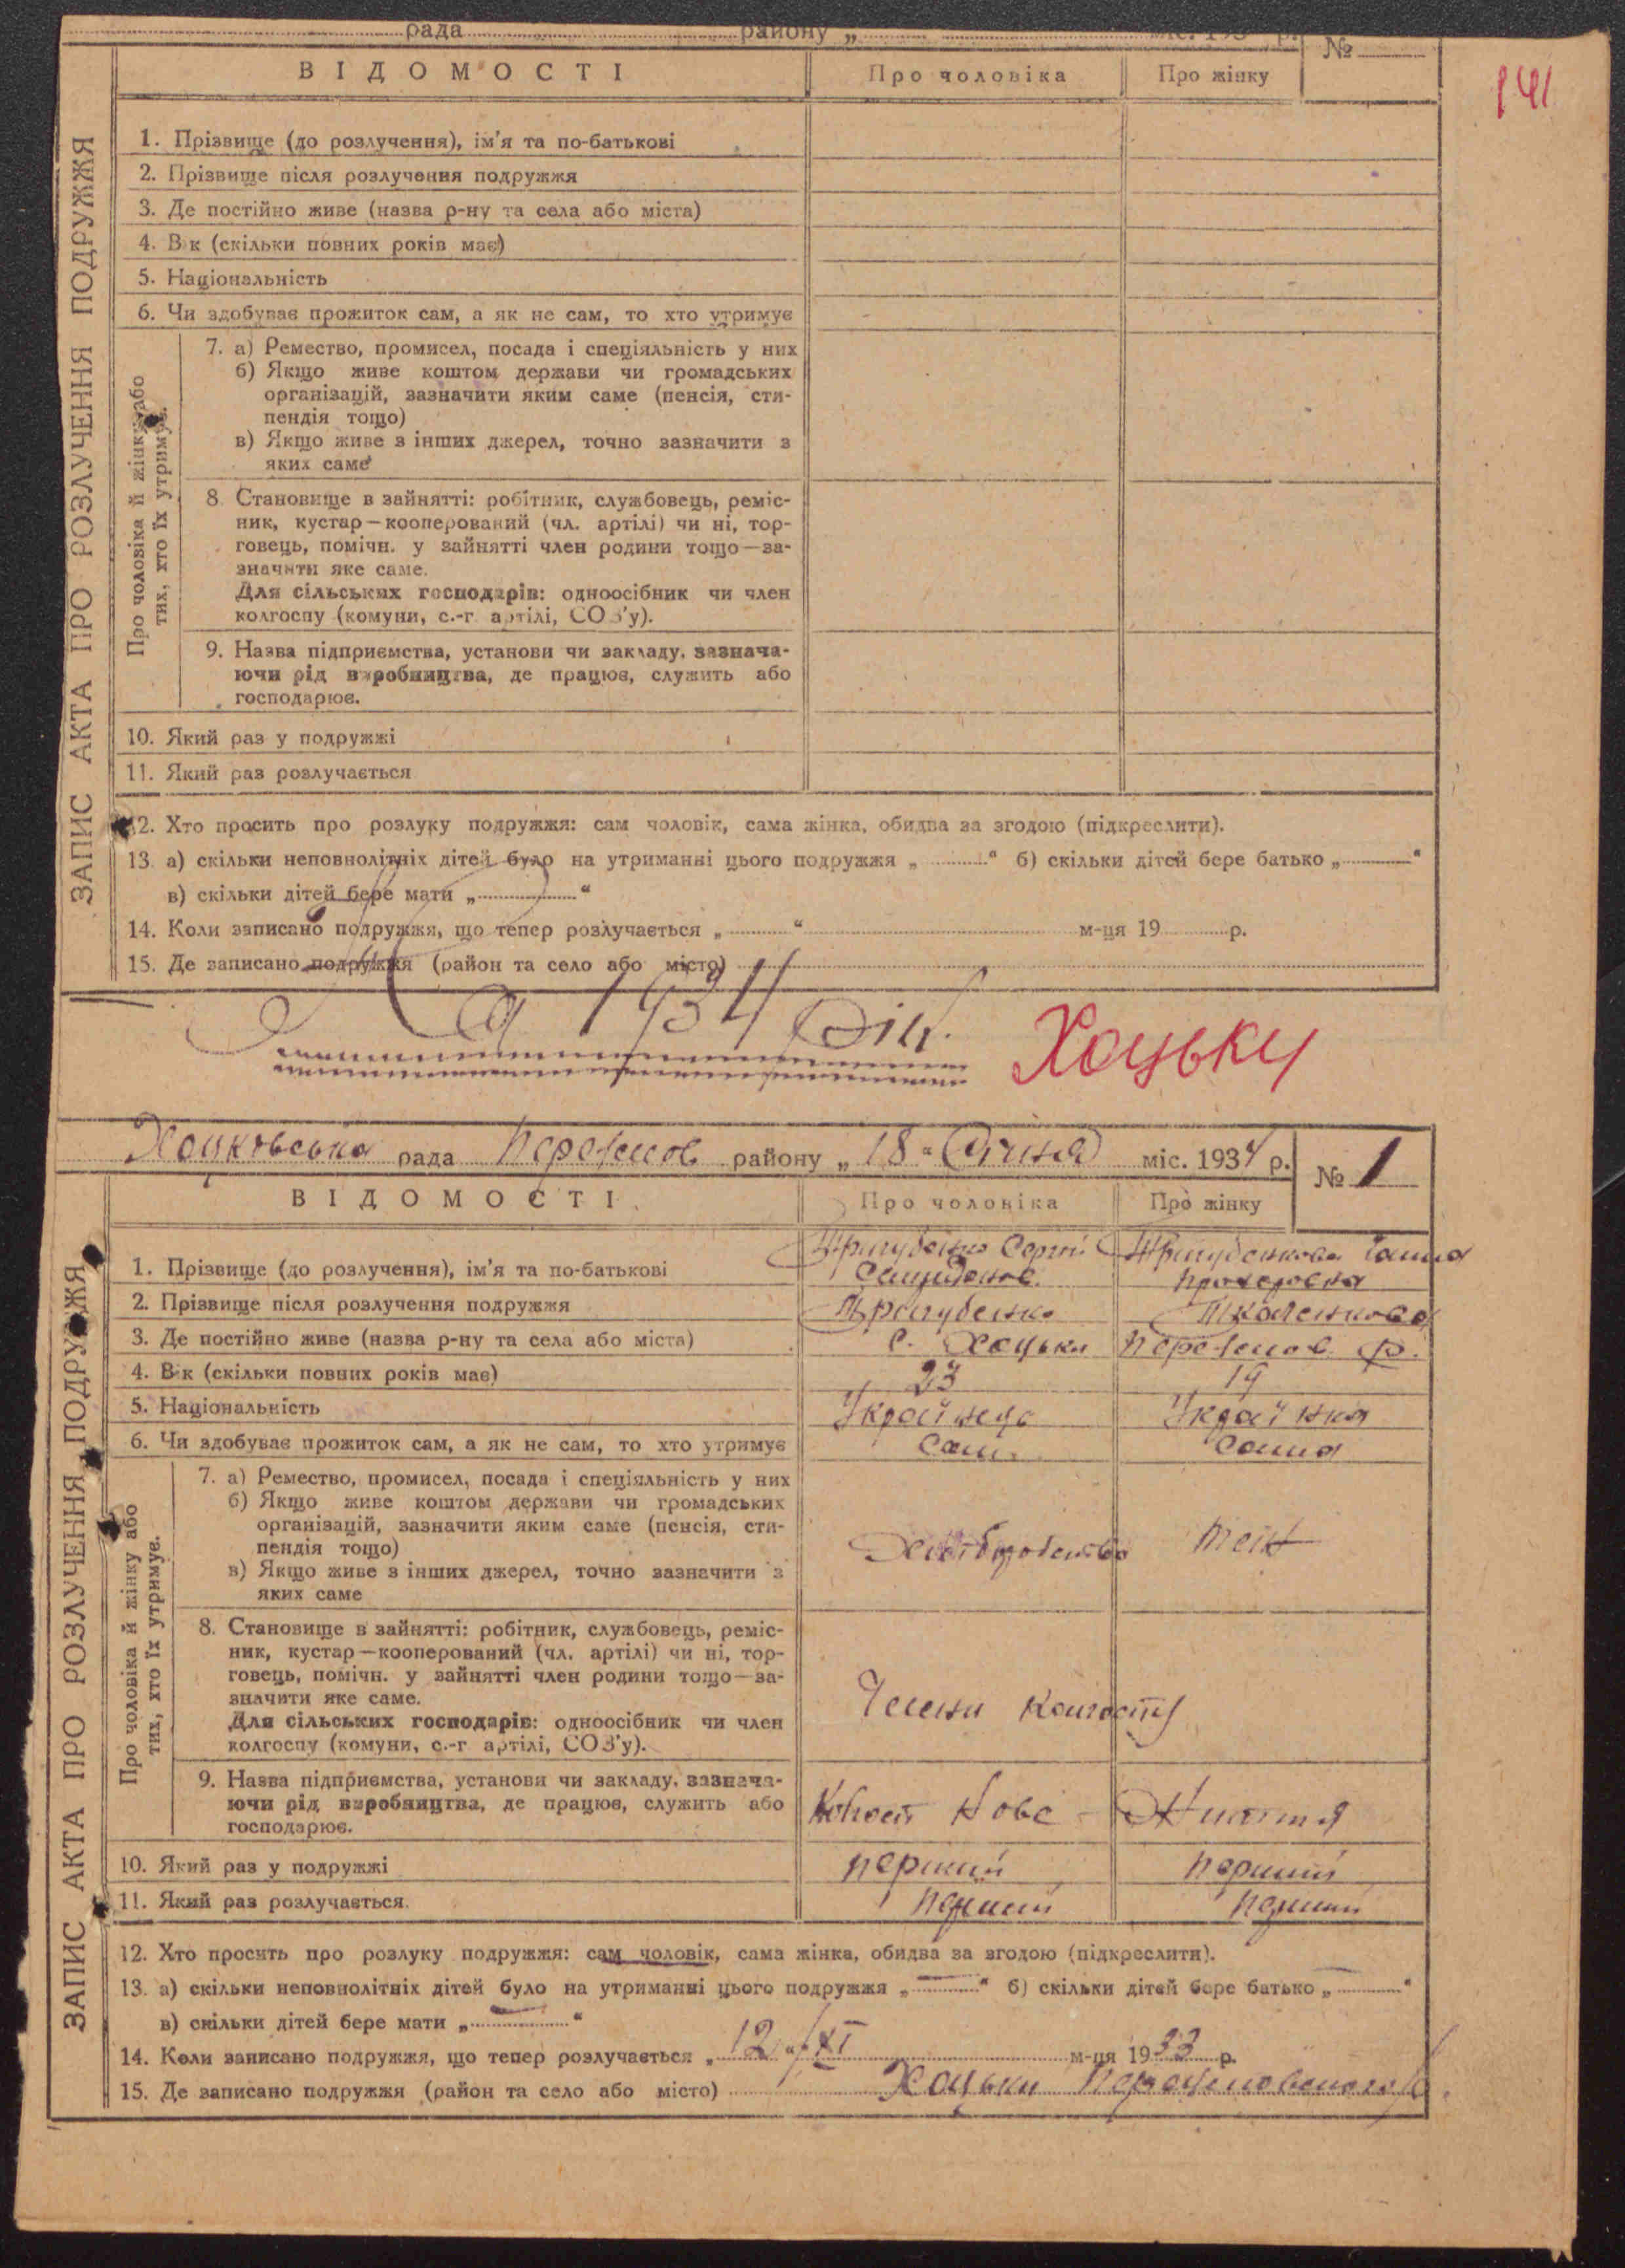 рада району „ міс. 193 р. №
141
ВІДОМОСТІ Про чоловіка Про жінку
ЗАПИС АКТА ПРО РОЗЛУЧЕННЯ ПОДРУЖЖЯ
1. Прізвище (до розлучення), ім'я та по-батькові
2. Прізвище після розлучення подружжя
3. Де постійно живе (назва р-ну та села або міста)
4. Вік (скільки повних років має)
5. Національність
6. Чи здобуває прожиток сам, а як не сам, то хто утримує
Про чоловіка й жінку або
тих, хто їх утримує.
7. а) Ремество, промисел, посада і спеціяльність у них
б) Якщо живе коштом держави чи громадських
організацій, зазначити яким саме (пенсія, сти-
пендія тощо)
в) Якщо живе з інших джерел, точно зазначити з
яких саме
8. Становище в зайнятті: робітник, службовець, реміс-
ник, кустар—кооперований (чл. артілі) чи ні, тор-
говець, помічн. у зайнятті член родини тощо—за-
значити яке саме.
Для сільських господарів: одноосібник чи член
колгоспу (комуни, с.-г. артілі, СОЗ'у).
9. Назва підприємства, установи чи закладу, зазнача-
ючи рід виробництва, де працює, служить або
господарює.
10. Який раз у подружжі
11. Який раз розлучається
12. Хто просить про розлуку подружжя: сам чоловік, сама жінка, обидва за згодою (підкреслити).
13. а) скільки неповнолітніх дітей було на утриманні цього подружжя „ “ б) скільки дітей бере батько „ “
в) скільки дітей бере мати „ “
14. Коли записано подружжя, що тепер розлучається „ “ м-ця 19 р.
15. Де записано подружжя (район та село або місто)
1934 рік. Хоцьки
Хоцковська рада Переяслов району „18“ Січня міс. 1934 р. № 1
ВІДОМОСТІ Про чоловіка Про жінку
ЗАПИС АКТА ПРО РОЗЛУЧЕННЯ ПОДРУЖЖЯ
1. Прізвище (до розлучення), ім'я та по-батькові Сергій
Прохоровна
2. Прізвище після розлучення подружжя
3. Де постійно живе (назва р-ну та села або міста) с. Хоцьки Переяслов. р.
4. Вік (скільки повних років має) 23 19
5. Національність Українець Українка
6. Чи здобуває прожиток сам, а як не сам, то хто утримує Сам Сама
Про чоловіка й жінку або
тих, хто їх утримує.
7. а) Ремество, промисел, посада і спеціяльність у них
б) Якщо живе коштом держави чи громадських
організацій, зазначити яким саме (пенсія, сти-
пендія тощо) Хліборобство теж
в) Якщо живе з інших джерел, точно зазначити з
яких саме
8. Становище в зайнятті: робітник, службовець, реміс-
ник, кустар—кооперований (чл. артілі) чи ні, тор-
говець, помічн. у зайнятті член родини тощо—за-
значити яке саме. Члени колгоспу
Для сільських господарів: одноосібник чи член
колгоспу (комуни, с.-г. артілі, СОЗ'у).
9. Назва підприємства, установи чи закладу, зазнача-
ючи рід виробництва, де працює, служить або Колгосп Нове - Життя
господарює.
10. Який раз у подружжі перший перший
11. Який раз розлучається. перший перший
12. Хто просить про розлуку подружжя: сам чоловік, сама жінка, обидва за згодою (підкреслити).
13. а) скільки неповнолітніх дітей було на утриманні цього подружжя „ — “ б) скільки дітей бере батько „ — “
в) скільки дітей бере мати „ — “
14. Коли записано подружжя, що тепер розлучається „ 12 “ / XI м-ця 1933 р.
15. Де записано подружжя (район та село або місто) Хоцьки Переясловського р.